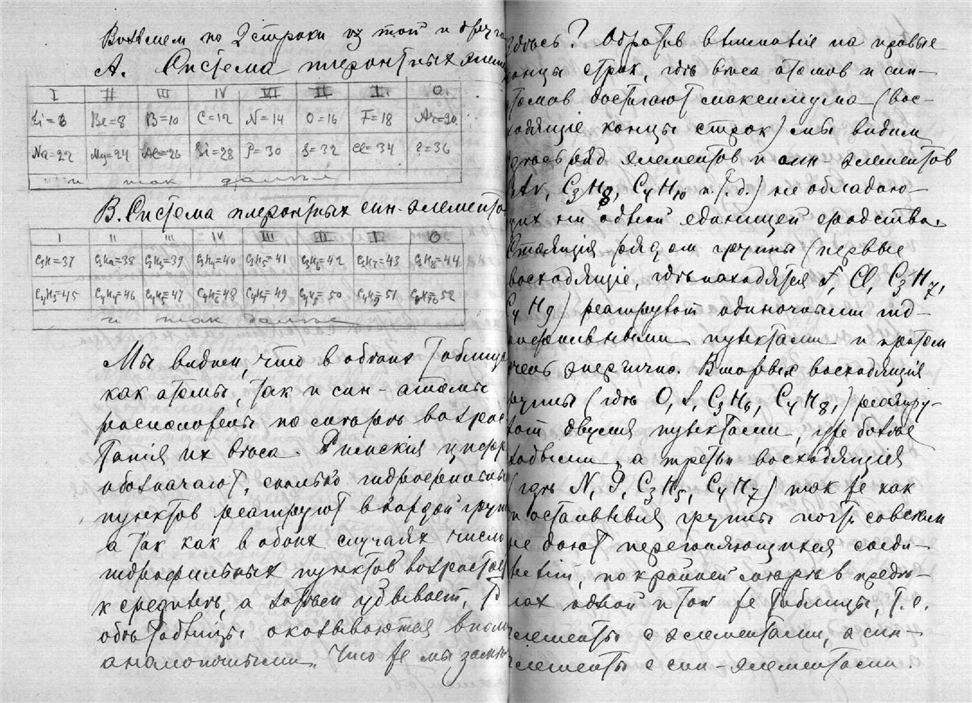 Возьмем по 2 строки из той и друго
А. Система плеронтных элем
I II III IV III II I. 0.
Li=6 Be=8 B=10 C=12 N=14 O=16 F=18
Na=22 Mg=24 Al=26 Si=28 P=30 S=32 Cl=34 =36
и так далее
В. Система плеронтных син-элементо
I II III IV III II I 0
C₃H=37 C₃H₂=38 C₃H₃=39 C₃H₄=40 C₃H₅=41 C₃H₆=42 C₃H₇=43 C₃H₈=44
C₄H₃=45 C₄H₄=46 C₄H₅=47 C₄H₆=48 C₄H₇=49 C₄H₈=50 C₄H₉=51 C₄H₁₀=52
и так далее
Мы видим, что в обѣих таблиц
как атомы, так и син-атомы
расположены по мѣрѣ возрас-
танія их вѣса. Римскія цифр
обозначают, сколько гидрофильных
пунктов реагируют в каждой групп
а так как в обоих случаях число
гидрофильных пунктов возрастае
к срединѣ, а затѣм убывает, т
обѣ таблицы оказываются вполн
аналогичными. Что же мы замѣч
здѣсь? Обратив вниманіе на правые
концы строк, гдѣ вѣса атомов и син-
атомов достигают максимума (вос-
ходящіе концы строк) мы видим
ряд элементов и син-элементов
(Ar, C₃H₈, C₄H₁₀ и т.д.) не обладаю-
щих ни одной единицей сродства.
Стоящія рядом группы (первые
восходящіе, гдѣ находятся F, Cl, C₃H₇,
C₄H₉) реагируют одиночными гид-
рофильными пунктами и притом
очень энергично. Вторыя восходящія
группы (гдѣ O, S, C₃H₆, C₄H₈,) реагиру-
ют двумя пунктами, уже болѣе
слабыми, а третьи восходящія
(гдѣ N, P, C₃H₅, C₄H₇) так же как
и остальныя группы почти совсем
не дают перегоняющихся соеди-
неній, по крайней мѣрѣ в предѣ-
лах одной и той же таблицы, т.е.
элементы с элементами, а син-
элементы с син-элементами.